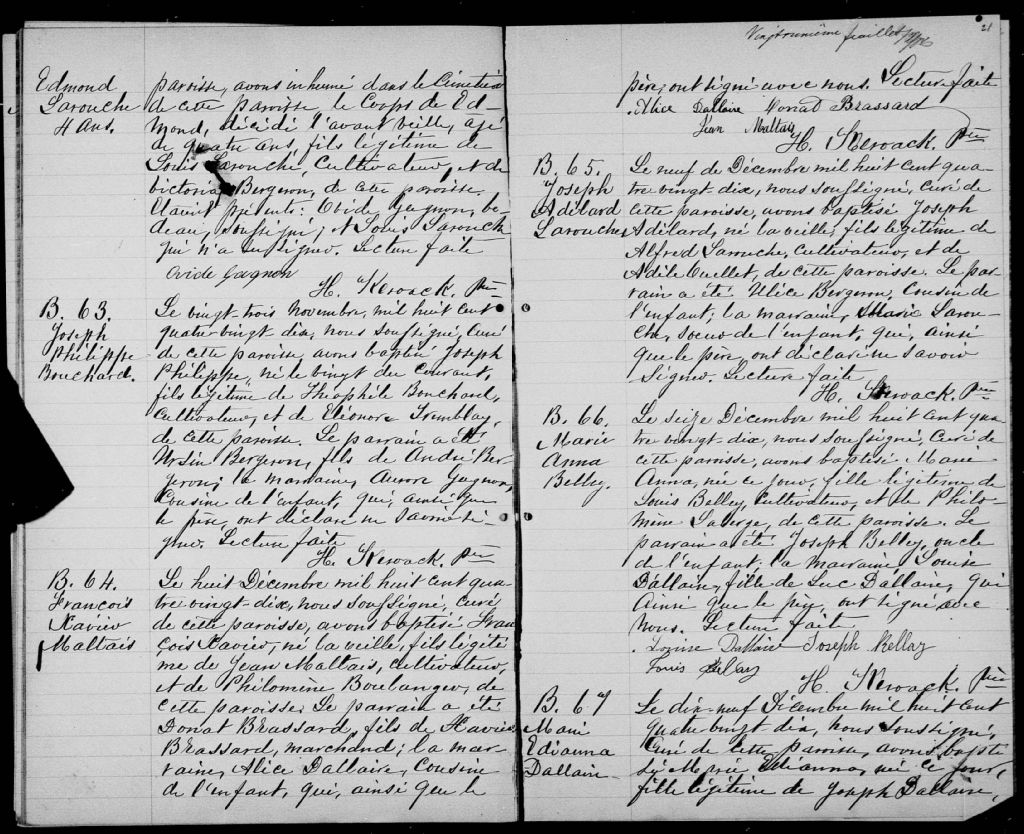 Edmond
Larouche
4 ans.
paroisse, avons inhumé dans le Cimetière
de cette paroisse, le Corps de Ed-
mond, décédé l'avant veille, agé
de quatre ans, fils légitime de
Louis Larouche, Cultivateur, et de
Victoria Bergeron, de cette paroisse.
Etaient présents: Ovide Gagnon, be-
deau, soussigné; et Louis Larouche
qui n'a su signer. Lecture faite
Ovide Gagnon
H. Kéroack. Ptre
B. 63.
Joseph
Philippe
Bouchard.
Le vingt trois Novembre, mil huit cent
quatre-vingt dix, nous soussigné, curé
de cette paroisse avons baptisé Joseph
Philippe, né le vingt du courant,
fils légitime de Théophile Bouchard,
Cultivateur, et de Eléonore Tremblay,
de cette paroisse. Le parrain a été
Ursin Bergeron, fils de André Ber-
geron; la marraine, Aurore Gagnon,
Cousine de l'enfant, qui, ainsi que
le père, ont déclaré ne savoir si-
gner. Lecture faite
H. Kéroack. Ptre
B. 64.
François
Xavier
Maltais
Le huit Décembre mil huit cent qua-
tre vingt-dix, nous soussigné, curé
de cette paroisse, avons baptisé Fran
çois Xavier, né la veille, fils légiti
me de Jean Maltais, Cultivateur,
et de Philomène Boulanger, de
cette paroisse. Le parrain a été
Donat Brassard, fils de Xavier
Brassard, marchand; la mar-
raine, Alice Dallaire, Cousine
de l'enfant, qui, ainsi que le
Vingt-unième feuillet
21
père, ont signé avec nous. Lecture faite
Alice Dallaire Donat Brassard
Jean Maltais
H. Kéroack. Ptre
B. 65.
Joseph
Adélard
Larouche
Le neuf de Décembre mil huit cent qua-
tre vingt-dix, nous soussigné, Curé de
cette paroisse, avons baptisé Joseph
Adélard, né la veille, fils légitime de
Alfred Larouche, Cultivateur, et de
Adèle Ouellet, de cette paroisse. Le par
rain a été Ulice Bergeron, Cousin de
l'enfant; la marraine, Marie Larou-
che, soeur de l'enfant, qui, ainsi
que le père, ont déclaré ne savoir
signer. Lecture faite
H. Kéroack. Ptre
B. 66.
Marie
Anna
Belley
Le seize Décembre mil huit cent qua
tre vingt-dix, nous soussigné, Curé de
cette paroisse, avons baptisé Marie
Anna, née ce jour, fille légitime de
Louis Belley, Cultivateur, et de Philo-
mène Laberge, de cette paroisse. Le
parrain a été Joseph Belley, oncle
de l'enfant; la marraine Louise
Dallaire, fille de Luc Dallaire, qui
Ainsi que le père, ont signé avec
nous. Lecture faite
Louise Dallaire Joseph Bellay
Louis Bellay
H. Kéroack. Ptre
B. 67
Marie
Edianna
Dallaire
Le dix-neuf Décembre mil huit cent
quatre vingt dix, nous soussigné,
Curé de cette paroisse, avons bapti
sé Marie Edianna, née ce jour,
fille légitime de Joseph Dallaire,